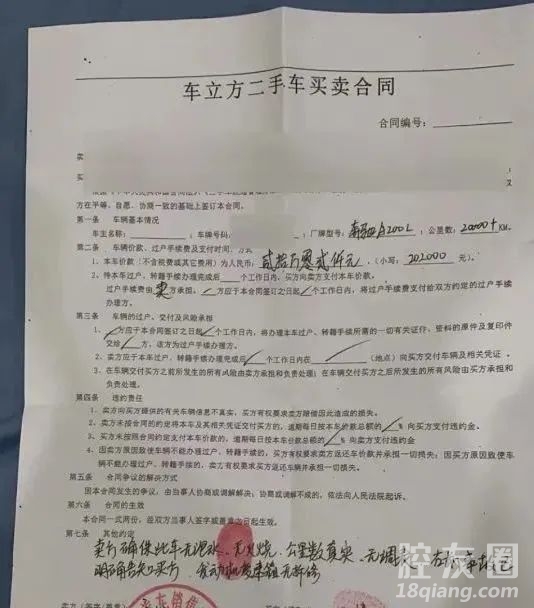 车立方二手车买卖合同
合同编号:
卖
买
又
方在平等、自愿、协商一致的基础上签订本合同。
第一条 车辆基本情况
车主名称: ;车牌号码: 厂牌型号:奔驰A200L,公里数:20000+KM。
第二条 车辆价款、过户手续费及支付时间、方式
1、本车价款(不含税费或其它费用)为人民币:贰拾万零贰仟元(小写:202000元)。
2、待本车过户、转籍手续办理完成后 个工作日内,买方向卖方支付本车价款。
过户手续费由卖方承担。/方应于本合同签订之日起/个工作日内,将过户手续费支付给双方约定的过户手续
办理方。
第三条 车辆的过户、交付及风险承担
1、/方应于本合同签订之日起/个工作日内,将办理本车过户、转籍手续所需的一切有关证件、资料的原件及复印件
交给/方,该方为过户手续办理方。
2、卖方应于本车过户、转籍手续办理完成后/个工作日内在 / (地点)向买方交付车辆及相关凭证。
3、在车辆交付买方之前所发生的所有风险由卖方承担和负责处理;在车辆交付买方之后所发生的所有风险由买方承担和
负责处理。
第四条 违约责任
1、卖方向买方提供的有关车辆信息不真实,买方有权要求卖方赔偿因此造成的损失。
2、卖方未按合同的约定将本车及其相关凭证交付买方的,逾期每日按本车价款总额的/%向买方支付违约金。
3、买方未按照合同约定支付本车价款的,逾期每日按本车价款总额的/%向卖方支付违约金
4、因卖方原因致使车辆不能办理过户、转籍手续的,买方有权要求卖方返还车辆价款并承担一切损失;因买方原因致使车
辆不能办理过户、转籍手续的,卖方有权要求买方返还车辆并承担一切损失。
第五条 合同争议的解决方式
因本合同发生的争议,由当事人协商或调解解决;协商或调解不成的,依法向人民法院起诉。
第六条 合同的生效
本合同一式两份,经双方当事人签字或盖章之日起生效。
第七条 其他约定
卖方确保此车无泡水、无火烧、公里数真实、无调表
明确告知买方 发动机变速箱无拆修
卖方:(签字/盖章)
腔友圈
18qiang.com